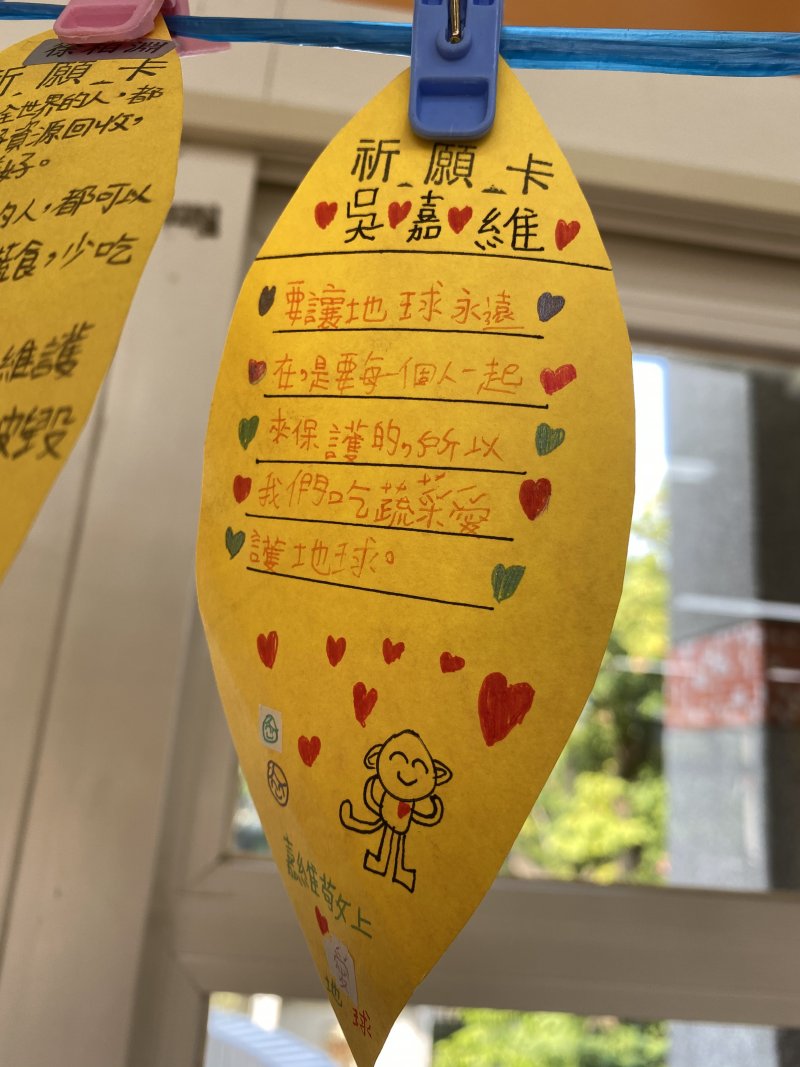 祈願卡
全世界的人，都
資源回收，
好。
的人，都可以
蔬食，少吃
維護
毀
祈願卡
吳嘉維
要讓地球永遠
在，是要每一個人一起
來保護的，所以
我們吃蔬菜愛
護地球。
嘉維苟文上
地球